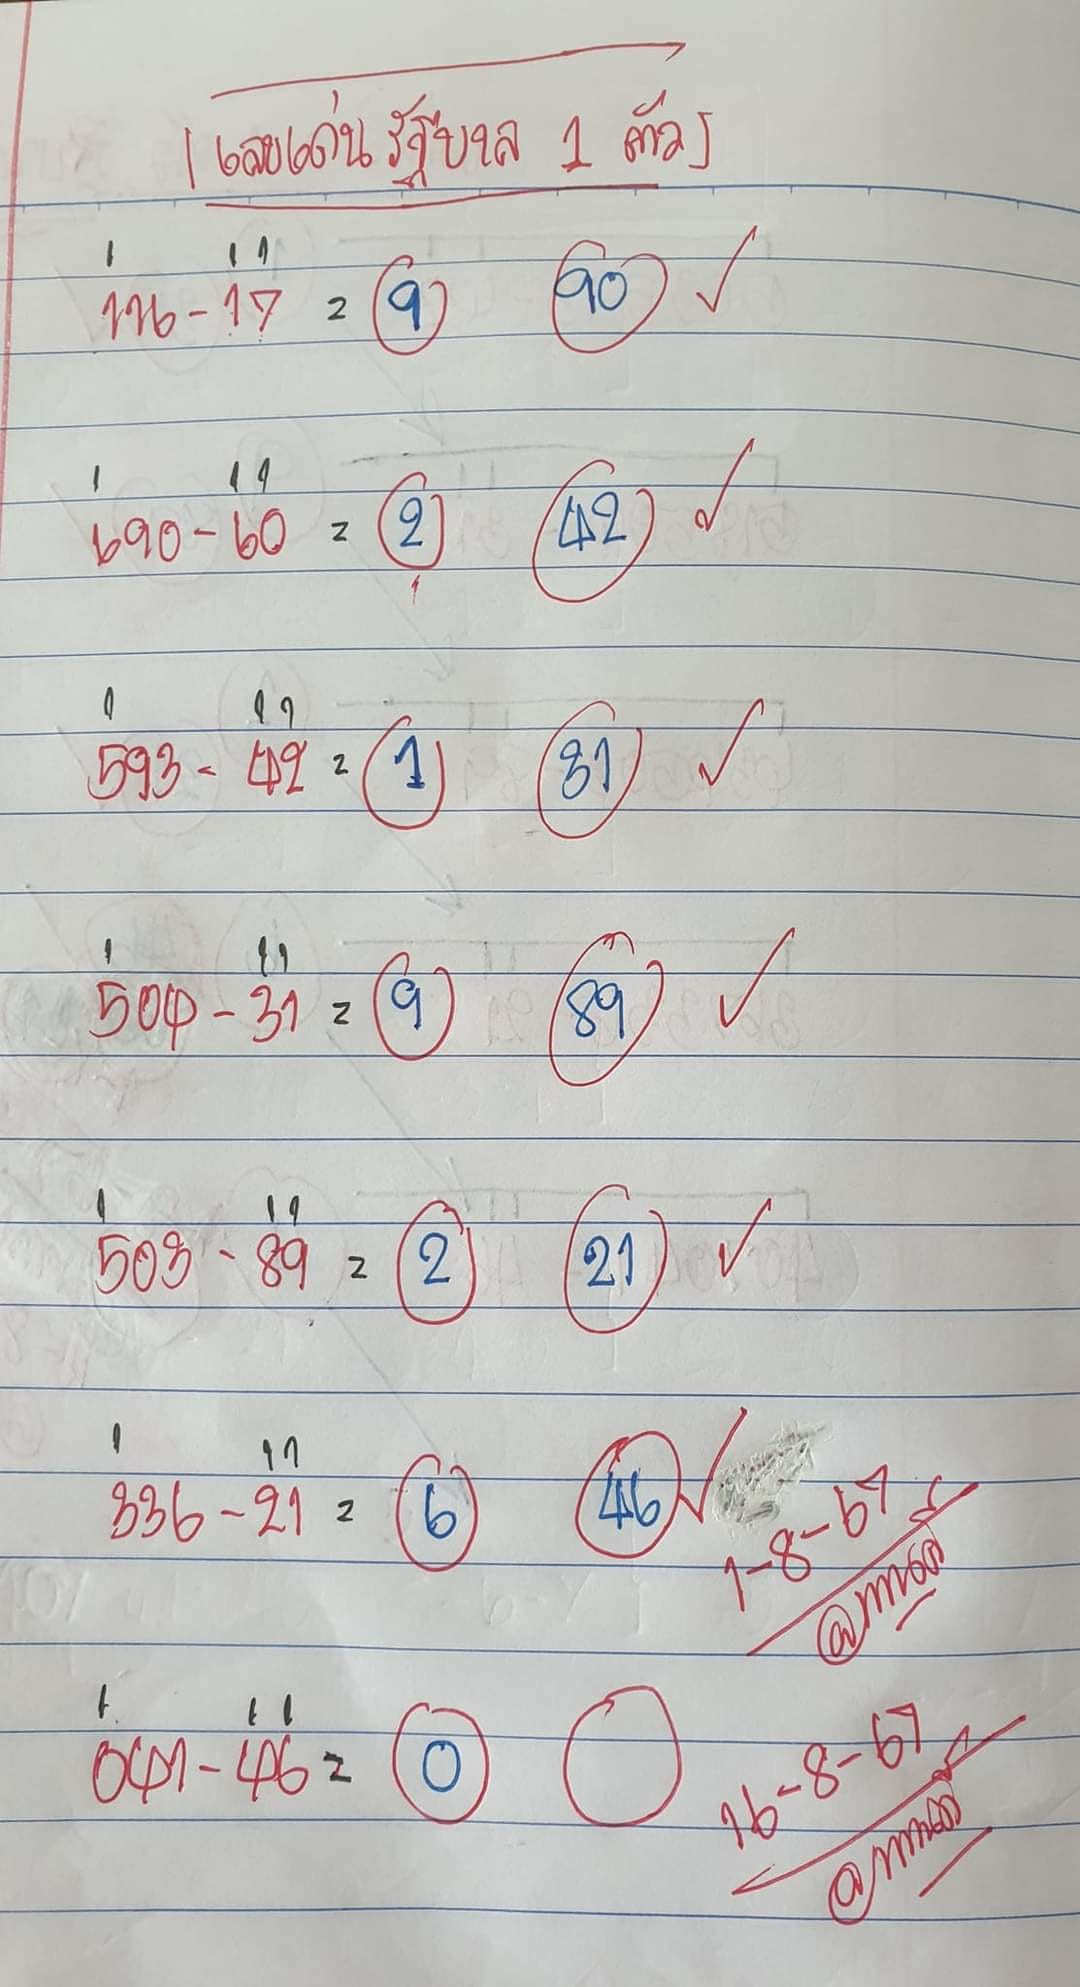 เลขเด่นรัฐบาล 1 ตัว
116-17 = 9 90 ✓
690-60 = 2 42 ✓
593-42 = 1 81 ✓
504-31 = 9 89 ✓
503-89 = 2 21 ✓
336-21 = 6 46 ✓
1-8-67
041-46 = 0
16-8-67